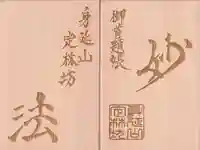 御首題帳
妙
身延山
定林坊
法